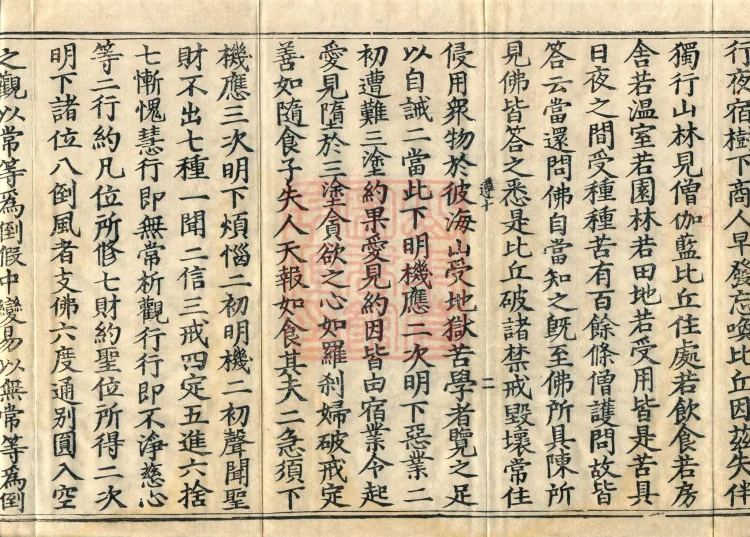 行夜宿樹下商人早發忘喚比丘因玆失伴
獨行山林見僧伽藍比丘住處若飲食若房
舍若溫室若園林若田地若受用皆是苦具
日夜之間受種種苦有百餘條僧護問故皆
答云當還問佛自當知之旣至佛所具陳所
見佛皆答之悉是比丘破諸禁戒毀壞常住
遵十
二
侵用衆物於彼海山受地獄苦學者覽之足
以自誡二當此下明機應二次明下惡業二
初遭難三塗約果愛見約因皆由宿業今起
愛見墮於三塗貪欲之心如羅刹婦破戒定
善如隨食子失人天報如食其夫二急須下
機應三次明下煩惱二初明機二初聲聞聖
財不出七種一聞二信三戒四定五進六捨
七慚愧慧行即無常析觀行行即不淨慈心
等二行約凡位所修七財約聖位所得二次
明下諸位八倒風者支佛六度通別圓入空
之觀以常等爲倒假中變易以無常等爲倒